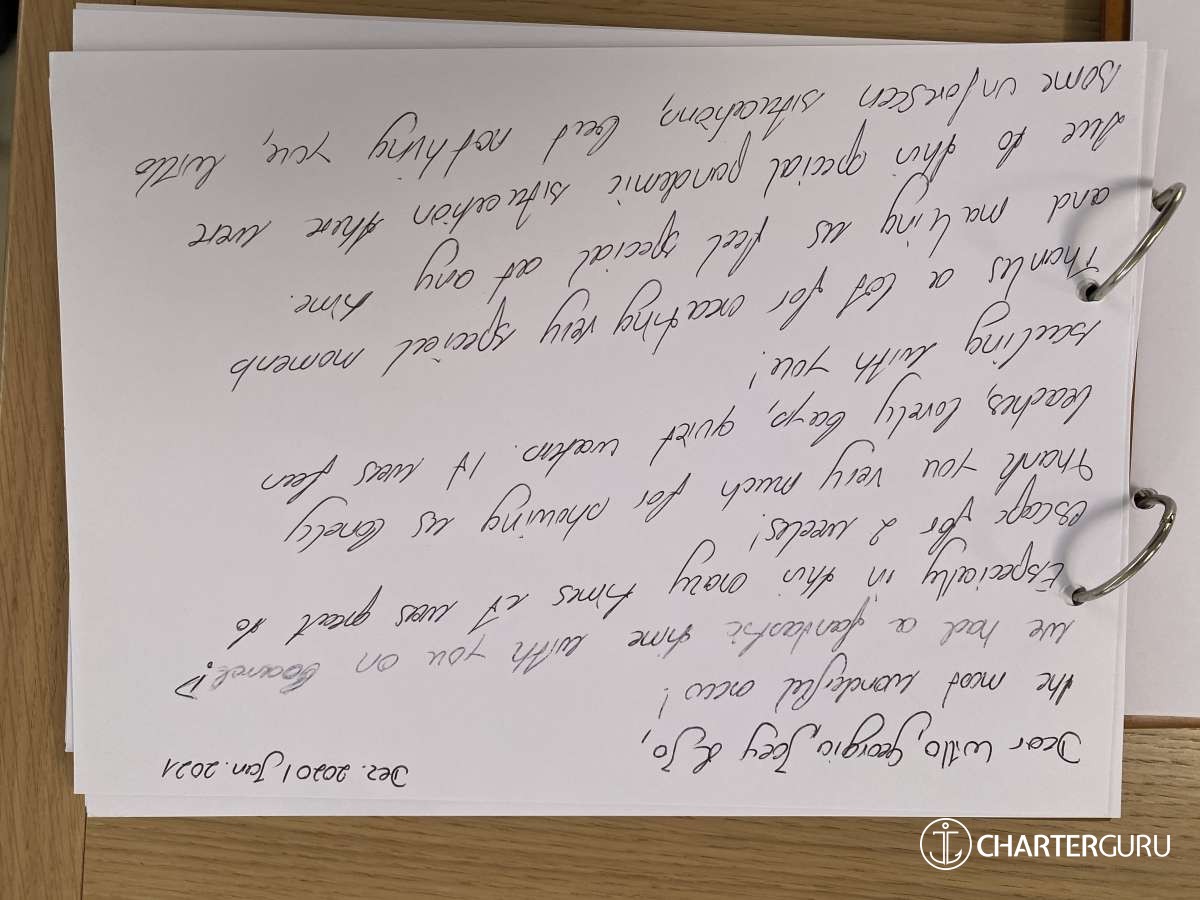 Dez. 2020 / Jan. 2021
Dear Willo, Georgia, Joey & Jo,
the most wonderful crew!
We had a fantastic time with you on board!
Especially in this crazy times it was great to
escape for 2 weeks!
Thank you very much for showing us lonely
beaches, lovely bays, quiet waters. It was fun
sailing with you!
Thanks a lot for creating very special moments
and making us feel special at any time.
Due to this special pandemic situation there were
some unforeseen situations, but nothing you, Willo
CHARTERGURU